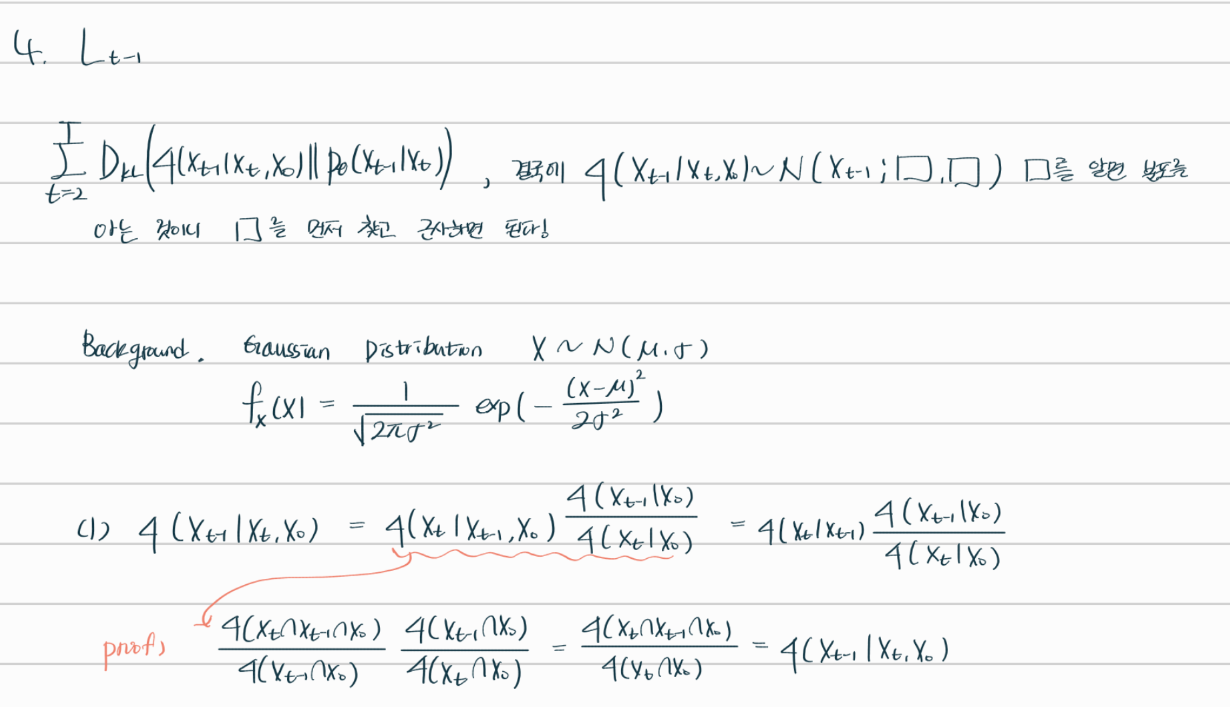 4. L_{t-1}
\sum_{t=2}^{T} D_{KL}(q(x_{t-1}|x_t, x_0) || p_θ(x_{t-1}|x_t)) , 결국에 q(x_{t-1}|x_t, x_0) ~ N(x_{t-1}; □, □) □를 알면 분포를
아는 것이니 □를 먼저 찾고 근사하면 된다!
Background. Gaussian Distribution X ~ N(μ, σ)
f_x(x) = \frac{1}{\sqrt{2πσ^2}} exp(-\frac{(x-μ)^2}{2σ^2})
(1) q(x_{t-1}|x_t, x_0) = q(x_t|x_{t-1}, x_0) \frac{q(x_{t-1}|x_0)}{q(x_t|x_0)} = q(x_t|x_{t-1}) \frac{q(x_{t-1}|x_0)}{q(x_t|x_0)}
proof) \frac{q(x_t∩x_{t-1}∩x_0)}{q(x_{t-1}∩x_0)} \frac{q(x_{t-1}∩x_0)}{q(x_t∩x_0)} = \frac{q(x_t∩x_{t-1}∩x_0)}{q(x_t∩x_0)} = q(x_{t-1}|x_t, x_0)